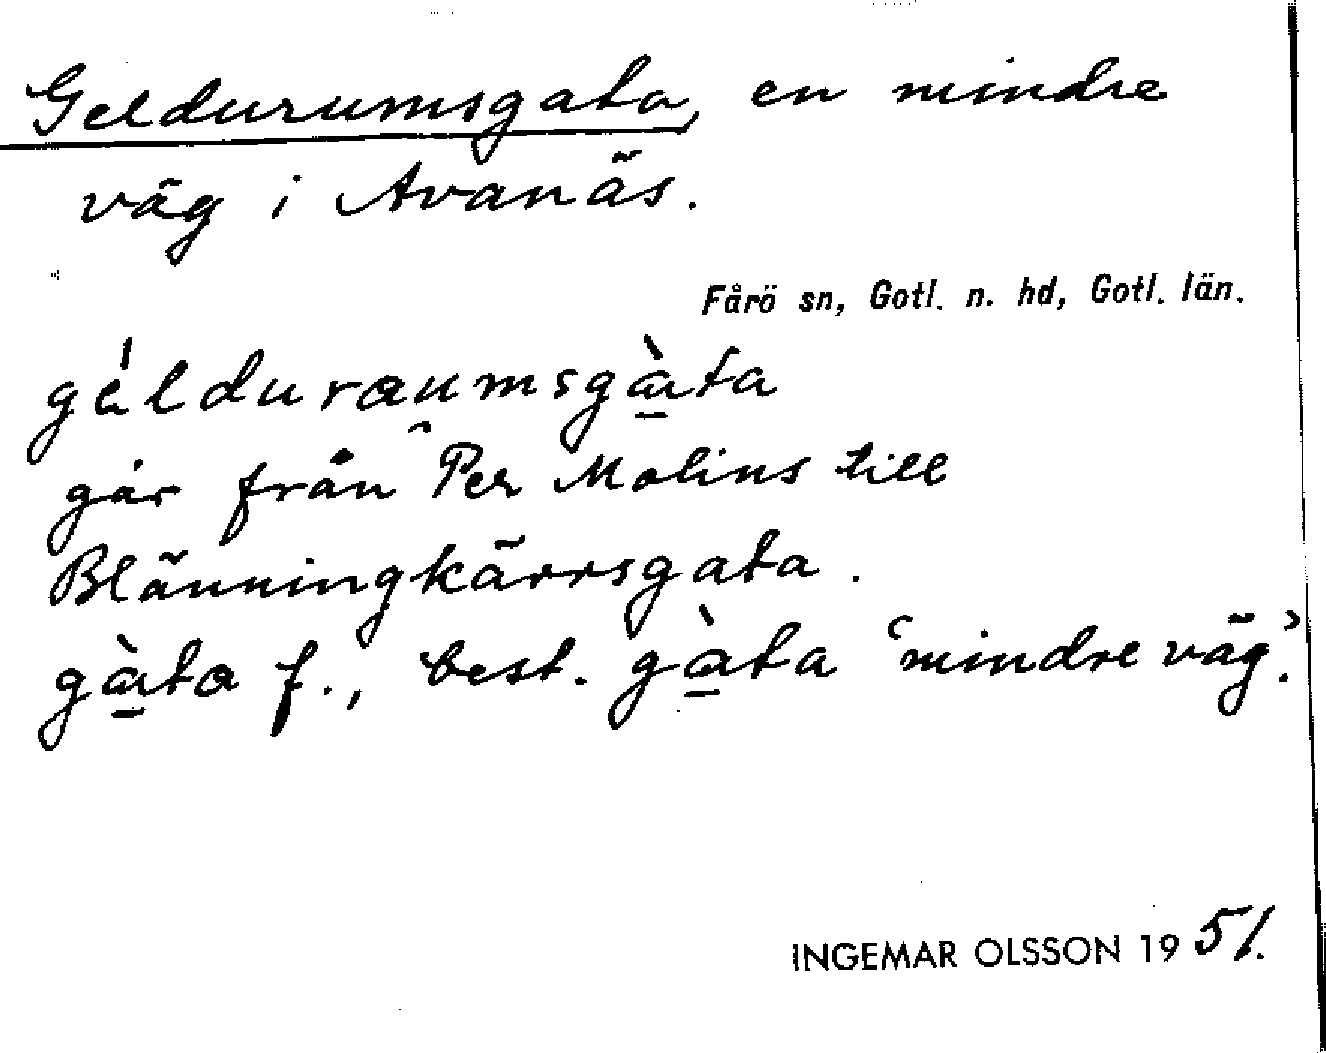 Geldurumsgata, en mindre
väg i Avanäs.
Fårö sn, Gotl. n. hd, Gotl. län.
gélduraumsgàta
går från Per Molins till
Blänningkärrsgata.
gàta f., best. gàta ‘mindre väg’.
INGEMAR OLSSON 1951.